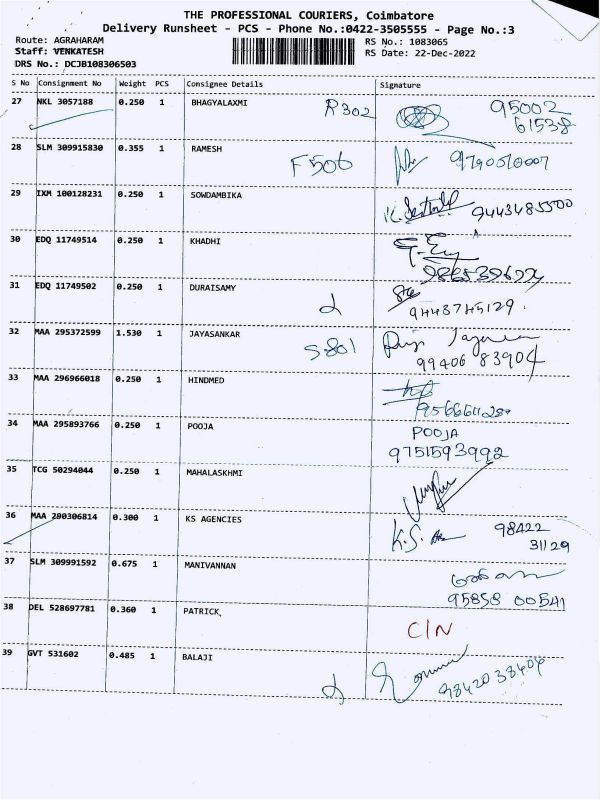 THE PROFESSIONAL COURIERS, Coimbatore
Delivery Runsheet - PCS - Phone No.:0422-3505555 - Page No.:3
Route: AGRAHARAM RS No.: 1083065
Staff: VENKATESH RS Date: 22-Dec-2022
DRS No.: DCJB108306503
S No Consignment No Weight PCS Consignee Details Signature
27 NKL 3057188 0.250 1 BHAGYALAXMI R302 95002
61538
28 SLM 309915830 0.355 1 RAMESH F506
29 IXM 100128231 0.250 1 SOWDAMBIKA 9443485500
30 EDQ 11749514 0.250 1 KHADHI
31 EDQ 11749502 0.250 1 DURAISAMY 9443745129
32 MAA 295372599 1.530 1 JAYASANKAR S801
99406 83904
33 MAA 296966018 0.250 1 HINDMED
34 MAA 295893766 0.250 1 POOJA POOJA
9751593992
35 TCG 50294044 0.250 1 MAHALASKHMI
36 MAA 290306814 0.300 1 KS AGENCIES K.S. 98422
31129
37 SLM 309991592 0.675 1 MANIVANNAN
95858 00541
38 DEL 528697781 0.360 1 PATRICK, C/N
39 GVT 531602 0.485 1 BALAJI 9842038404